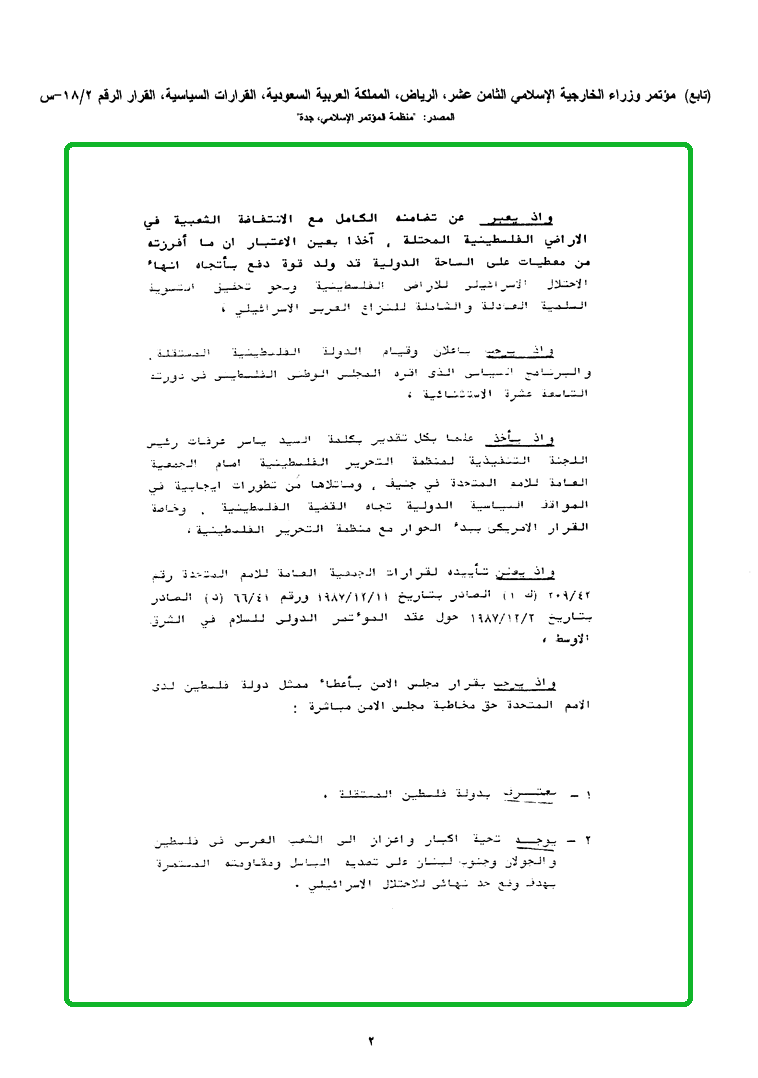 (تابع) مؤتمر وزراء الخارجية الإسلامي الثامن عشر، الرياض، المملكة العربية السعودية، القرارات السياسية، القرار الرقم ١٨/٢-س
المصدر: "منظمة المؤتمر الإسلامي، جدة"
واذ يعبر عن تضامنه الكامل مع الانتفاضة الشعبية في
الاراضي الفلسطينية المحتلة ، آخذا بعين الاعتبار ان ما أفرزته
من معطيات على الساحة الدولية قد ولد قوة دفع بأتجاه انهاء
الاحتلال الاسرائيلي للاراضي الفلسطينية ونحو تحقيق التسوية
السلمية العادلة والشاملة للنزاع العربي الاسرائيلي ،
واذ يرحب باعلان وقيام الدولة الفلسطينية المستقلة ،
والبرنامج السياسي الذى اقره المجلس الوطنى الفلسطيني في دورته
التاسعة عشرة الاستثنائية ،
واذ يأخذ علما بكل تقدير بكلمة السيد ياسر عرفات رئيس
اللجنة التنفيذية لمنظمة التحرير الفلسطينية امام الجمعية
العامة للامم المتحدة في جنيف ، وماتلاها من تطورات ايجابية في
المواقف السياسية الدولية تجاه القضية الفلسطينية ، وخاصة
القرار الامريكى ببدء الحوار مع منظمة التحرير الفلسطينية ،
واذ يعلن تأييده لقرارات الجمعية العامة للامم المتحدة رقم
٢٠٩/٤٢ (ك ١) الصادر بتاريخ ١٩٨٧/١٢/١١ ورقم ٦٦/٤١ (د) الصادر
بتاريخ ١٩٨٧/١٢/٢ حول عقد الموءتمر الدولى للسلام في الشرق
الاوسط ،
واذ يرحب بقرار مجلس الامن بأعطاء ممثل دولة فلسطين لدى
الامم المتحدة حق مخاطبة مجلس الامن مباشرة :
١ - يعترف بدولة فلسطين المستقلة .
٢ - يوجه تحية اكبار واعزاز الى الشعب العربى فى فلسطين
والجولان وجنوب لبنان على تصديه الباسل ومقاومته المستمرة
بهدف وضع حد نهائى للاحتلال الاسرائيلي .
٢